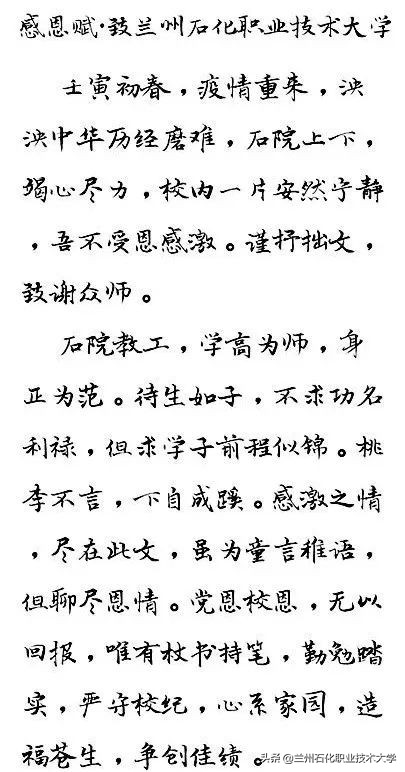 感恩赋·致兰州石化职业技术大学
壬寅初春，疫情重来，泱
泱中华历经磨难，石院上下，
竭心尽力，校内一片安然宁静
，吾不受恩感激。谨抒拙文，
致谢众师。
石院教工，学高为师，身
正为范。待生如子，不求功名
利禄，但求学子前程似锦。桃
李不言，下自成蹊。感激之情
，尽在此文，虽为童言稚语，
但聊尽恩情。党恩校恩，无以
回报，唯有杖书持笔，勤勉踏
实，严守校纪，心系家园，造
福苍生，争创佳绩。
头条@兰州石化职业技术大学